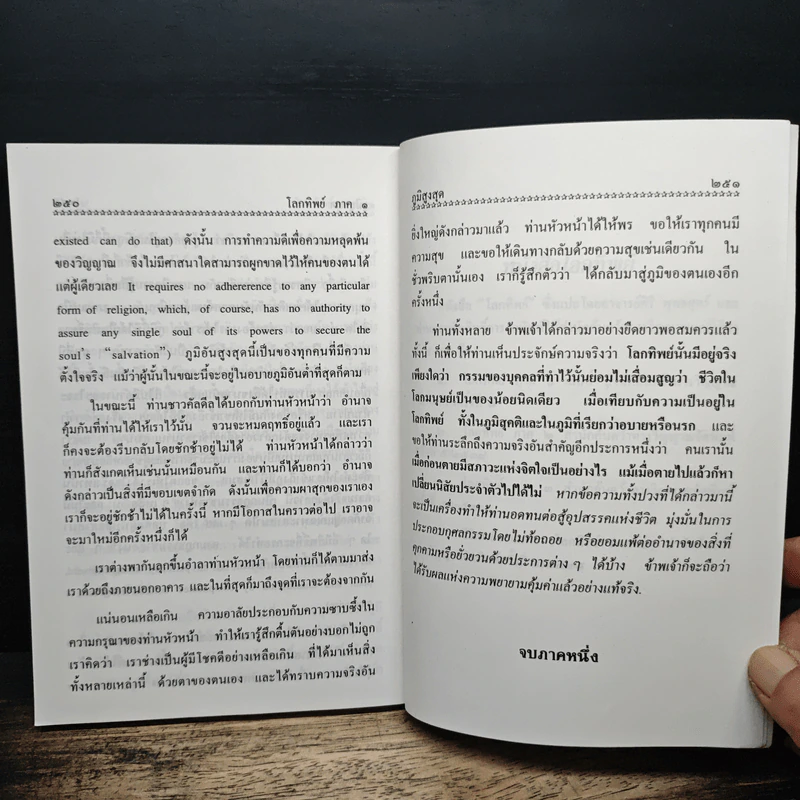 ๒๕๐ โลกทิพย์ ภาค ๑
existed can do that) ดังนั้น การทำความดีเพื่อความหลุดพ้น
ของวิญญาณ จึงไม่มีศาสนาใดสามารถผูกขาดไว้ให้คนของตนได้
แต่ผู้เดียวเลย It requires no adhererence to any particular
form of religion, which, of course, has no authority to
assure any single soul of its powers to secure the
soul's “salvation”) ภูมิอันสูงสุดนี้เป็นของทุกคนที่มีความ
ตั้งใจจริง แม้ว่าผู้นั้นในขณะนี้จะอยู่ในอบายภูมิอันต่ำที่สุดก็ตาม
ในขณะนี้ ท่านชาวคัลดีลได้บอกกับท่านหัวหน้าว่า อำนาจ
คุ้มกันที่ท่านได้ให้เราไว้นั้น จวนจะหมดฤทธิ์อยู่แล้ว และเรา
ก็คงจะต้องรีบกลับโดยชักช้าอยู่ไม่ได้ ท่านหัวหน้าได้กล่าวว่า
ท่านก็สังเกตเห็นเช่นนั้นเหมือนกัน และท่านก็ได้บอกว่า อำนาจ
ดังกล่าวเป็นสิ่งที่มีขอบเขตจำกัด ดังนั้นเพื่อความผาสุกของเราเอง
เราก็จะอยู่ชักช้าไม่ได้ในครั้งนี้ หากมีโอกาสในคราวต่อไป เราอาจ
จะมาใหม่อีกครั้งหนึ่งก็ได้
เราต่างพากันลุกขึ้นอำลาท่านหัวหน้า โดยท่านก็ได้ตามมาส่ง
เราด้วยถึงภายนอกอาคาร และในที่สุดก็มาถึงจุดที่เราจะต้องจากกัน
แน่นอนเหลือเกิน ความอาลัยประกอบกับความซาบซึ้งใน
ความกรุณาของท่านหัวหน้า ทำให้เรารู้สึกตื้นตันอย่างบอกไม่ถูก
เราคิดว่า เราช่างเป็นผู้มีโชคดีอย่างเหลือเกิน ที่ได้มาเห็นสิ่ง
ทั้งหลายเหล่านี้ ด้วยตาของตนเอง และได้ทราบความจริงอัน
ภูมิสูงสุด ๒๕๑
ยิ่งใหญ่ดังกล่าวมาแล้ว ท่านหัวหน้าได้ให้พร ขอให้เราทุกคนมี
ความสุข และขอให้เดินทางกลับด้วยความสุขเช่นเดียวกัน ใน
ชั่วพริบตานั้นเอง เราก็รู้สึกตัวว่า ได้กลับมาสู่ภูมิของตนเองอีก
ครั้งหนึ่ง
ท่านทั้งหลาย ข้าพเจ้าได้กล่าวมาอย่างยืดยาวพอสมควรแล้ว
ทั้งนี้ ก็เพื่อให้ท่านเห็นประจักษ์ความจริงว่า โลกทิพย์นั้นมีอยู่จริง
เพียงใดว่า กรรมของบุคคลที่ทำไว้นั้นย่อมไม่เสื่อมสูญว่า ชีวิตใน
โลกมนุษย์เป็นของน้อยนิดเดียว เมื่อเทียบกับความเป็นอยู่ใน
โลกทิพย์ ทั้งในภูมิสุคติและในภูมิที่เรียกว่าอบายหรือนรก และ
ขอให้ท่านระลึกถึงความจริงอันสำคัญอีกประการหนึ่งว่า คนเรานั้น
เมื่อก่อนตายมีสภาวะแห่งจิตใจเป็นอย่างไร แม้เมื่อตายไปแล้วก็หา
เปลี่ยนนิสัยประจำตัวไปได้ไม่ หากข้อความทั้งปวงที่ได้กล่าวมานี้
จะเป็นเครื่องทำให้ท่านอดทนต่อสู้อุปสรรคแห่งชีวิต มุ่งมั่นในการ
ประกอบกุศลกรรมโดยไม่ท้อถอย หรือยอมแพ้ต่ออำนาจของสิ่งที่
คุกคามหรือยั่วยวนด้วยประการต่าง ๆ ได้บ้าง ข้าพเจ้าก็จะถือว่า
ได้รับผลแห่งความพยายามคุ้มค่าแล้วอย่างแท้จริง.
จบภาคหนึ่ง